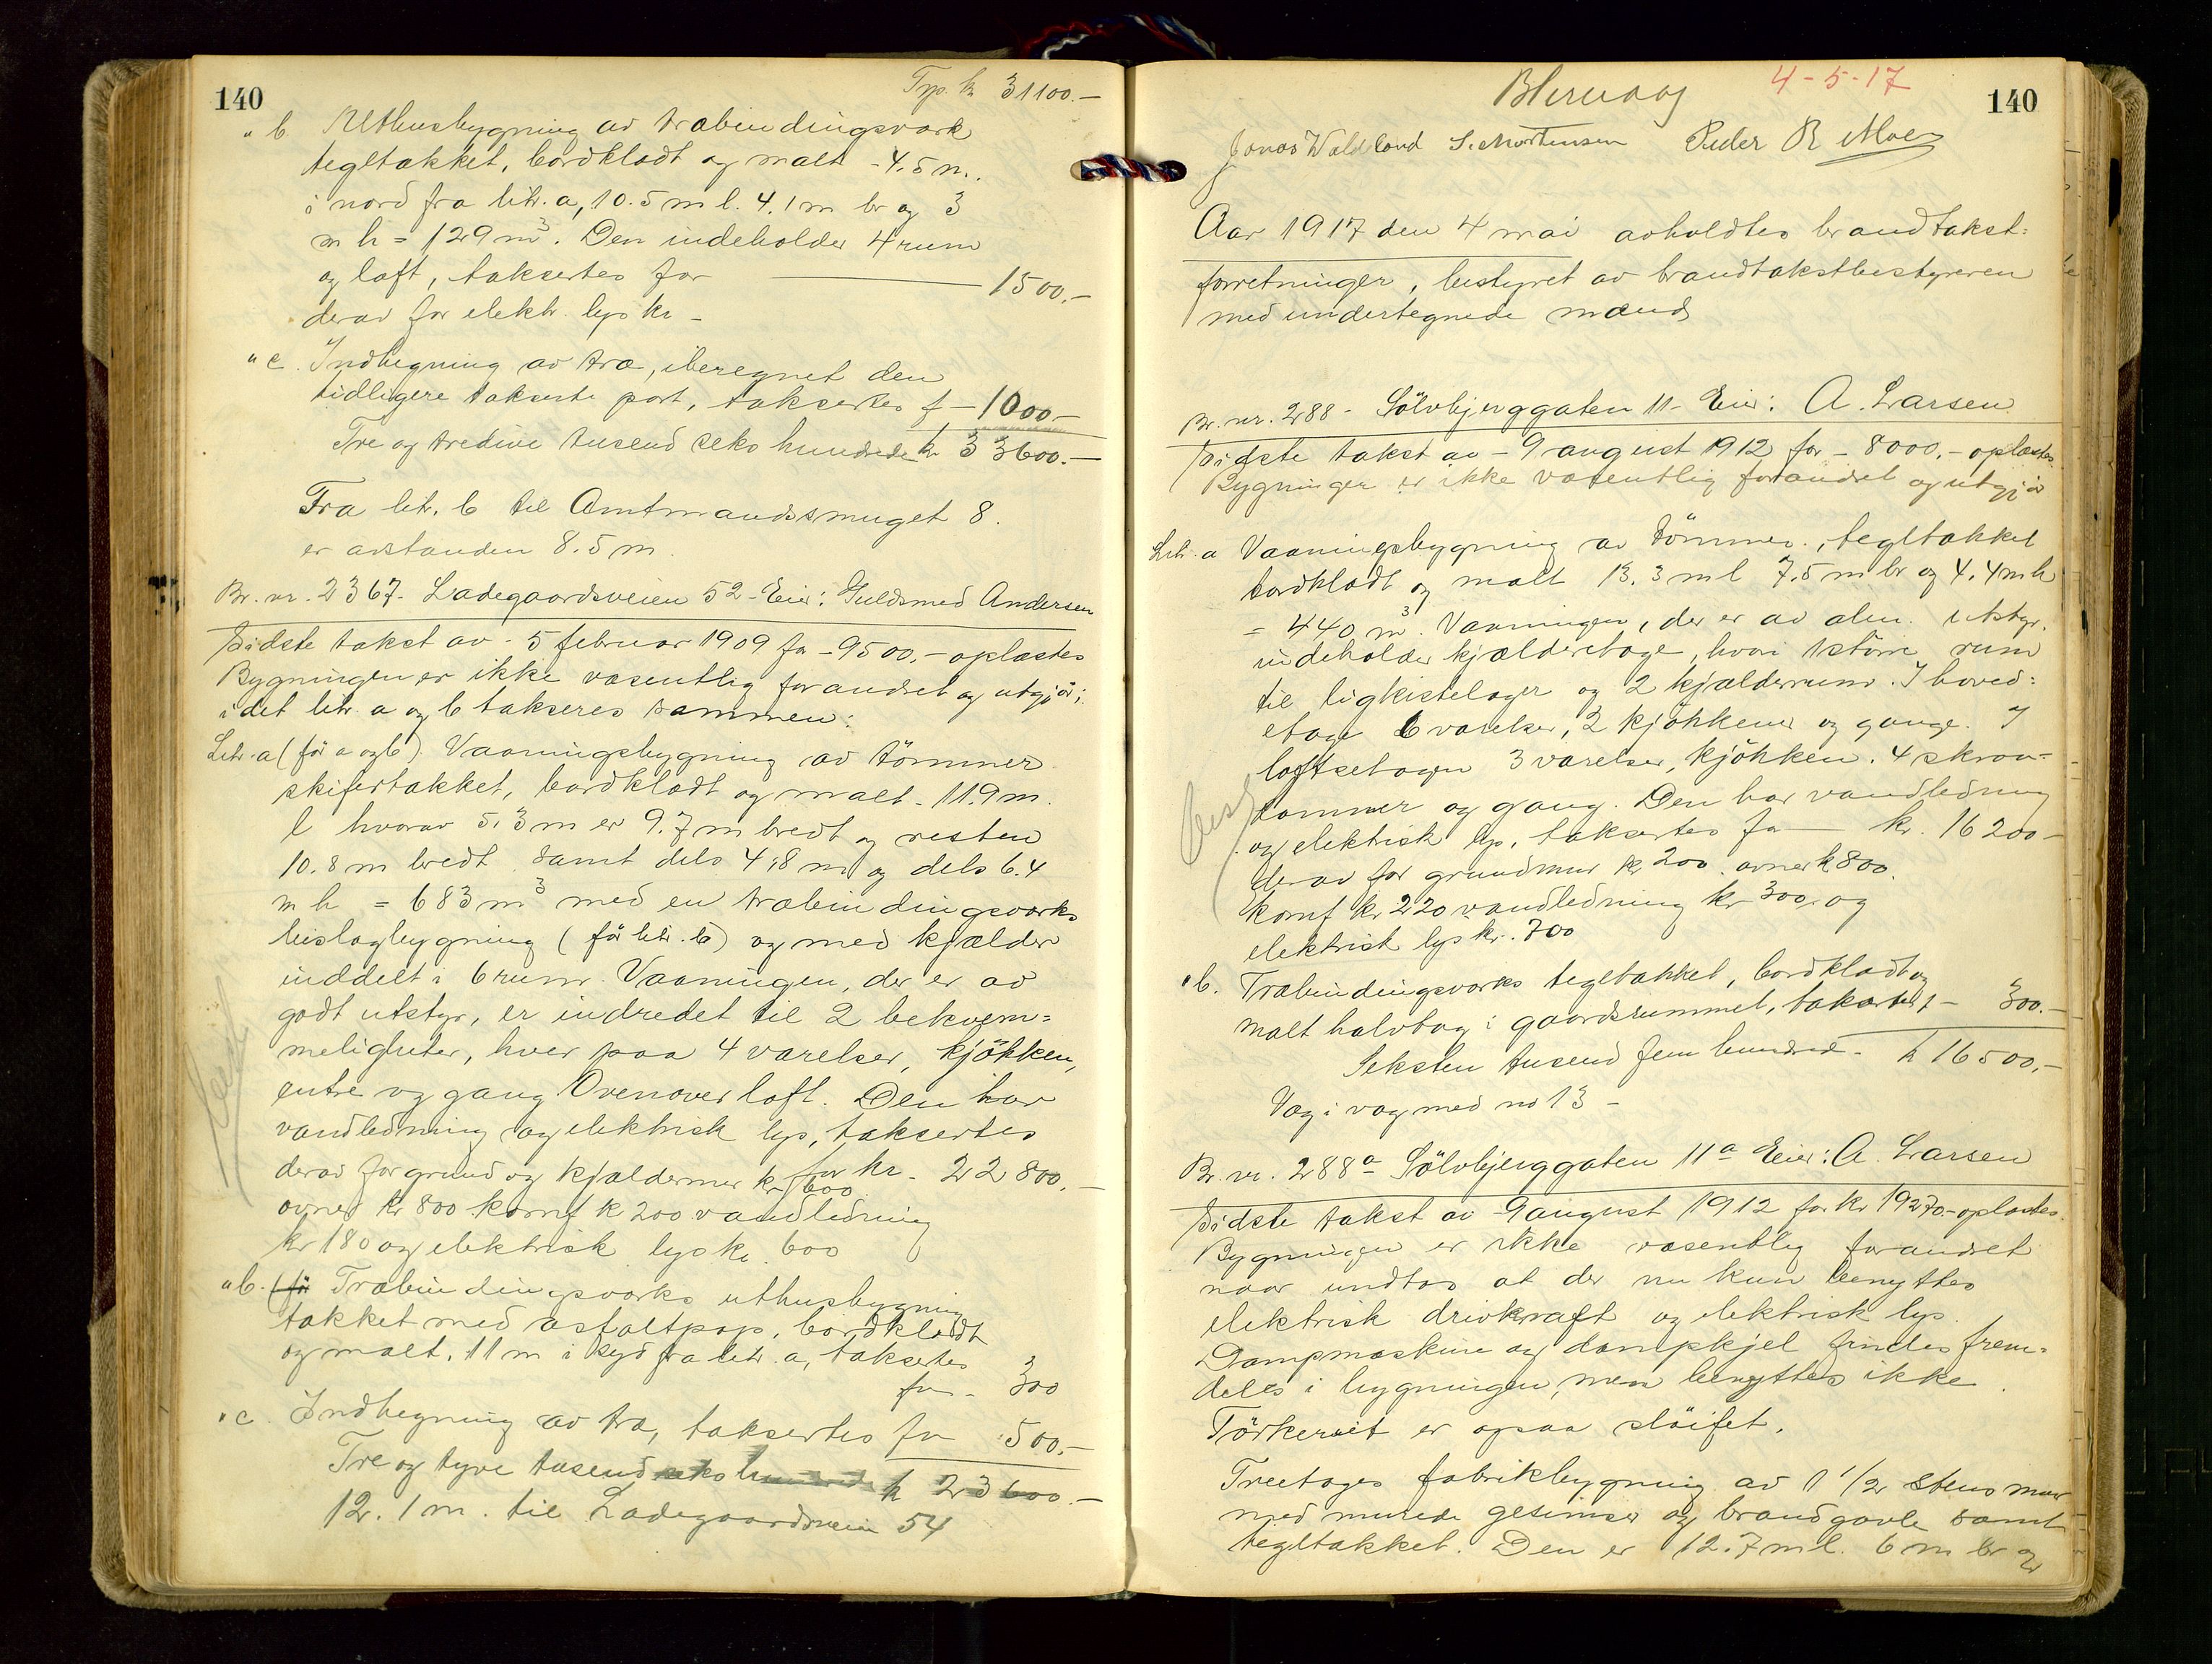 140
Trp. kr 31100.-
" b Uthusbygning av træbindingsværk
tegltækket, bordklædt og malt - 4.5 m.
i nord fra litr. a, 10.5 m l. 4.1 m br og 3
m h = 129 m³. Den indeholder 4 rum
og loft, taksertes for 1500.-
derav for elektr. lys kr -
" c. Indhegning av træ, iberegnet den
tidligere takserte port, taksertes f - 1000 -
Tre og tredive tusend seks hundrede kr 33600.-
Fra litr. b til Amtmandssmuget 8.
er avstanden 8.5 m.
Br. nr. 2367. Ladegaardsveien 52 - Eier: Guldsmed Andersen
Sidste takst av - 5 februar 1909 for - 9500.- oplæstes
Bygningen er ikke væsentlig forandret og utgjør;
i det litr. a og b takseres sammen:
Litr. a (før a og b). Vaaningsbygning av tømmer
skifertækket, bordklædt og malt - 11.9 m.
l hvorav 5.3 m er 9.7 m bredt og resten
10.8 m bredt samt dels 4.8 m og dels 6.4
m h = 683 m³ med en træbindingsværks
bislagbygning (før litr. b) og med kjælder
inddelt i 6 rum. Vaaningen, der er av
godt utstyr, er indredet til 2 bekvem=
meligheter, hver paa 4 værelser, kjøkken,
entre og gang Ovenover loft. Den har
vandledning og elektrisk lys, taksertes
for kr. 22800.-
derav for grund og kjældermur kr 600
ovner kr 800 komf k 200 vandledning
kr 180 og elektrisk lys kr. 600
" b. (før Træbindingsværks uthusbygning
tækket med asfaltpap, bordklædt
og malt. 11 m i syd fra litr. a, taksertes
for - 300
" c. Indhegning av træ, taksertes for 500.-
Tre og tyve tusend seks hundrede kr 23600.-
12.1 m. til Ladegaardsveien 54
140
4-5-17
Jonas Waldeland S. Mortensen Peder R Moe
Aar 1917 den 4 mai avholdtes brandtakst=
forretninger, bestyret av brandtakstbestyreren
med undertegnede mænd
Br. nr. 288 - Sølvbjerggaten 11 - Eier: A. Larsen
Sidste takst av - 9 august 1912 for - 8000.- oplæstes.
Bygninger er ikke væsentlig forandret og utgjør
Litr. a Vaaningsbygning av tømmer, tegltækket
bordklædt og malt 13.3 m l 7.5 m br og 4.4 m h
= 440 m³. Vaaningen, der er av alm. utstyr,
indeholder kjælderetage, hvori 1 større rum
til ligkistelager og 2 kjælderrum. I hoved=
etage 6 værelser, 2 kjøkkener og gange. I
loftsetagen 3 værelser, kjøkken. 4 skraa=
kammer og gang. Den har vandledning
og elektrisk lys, taksertes for kr. 16200 -
derav for grundmur kr 200 ovner k 800.
komf kr 220 vandledning kr 300, og
elektrisk lys kr. 700
" b. Træbindingsværks tegltækket, bordklædt og
malt halvtag i gaardsrummet, takseret f - 300.-
Seksten tusend fem hundred - kr 16500.-
Væg i væg med no 13 -
Br. nr. 288a Sølvbjerggaten 11a Eier: A. Larsen
Sidste takst av 9 august 1912 for kr 19270.- oplæstes.
Bygningen er ikke væsentlig forandret
naar undtas at der nu kun benyttes
elektrisk drivkraft og elektrisk lys.
Dampmaskine og dampkjel findes frem=
deles i bygningen, men benyttes ikke.
Tørkeriet er ogsaa sløifet.
Treetages fabrikbygning av 1 1/2 stens mur
med murede gesimser og brandgavle samt
tegltækket. Den er 12.7 m l. 6 m br og